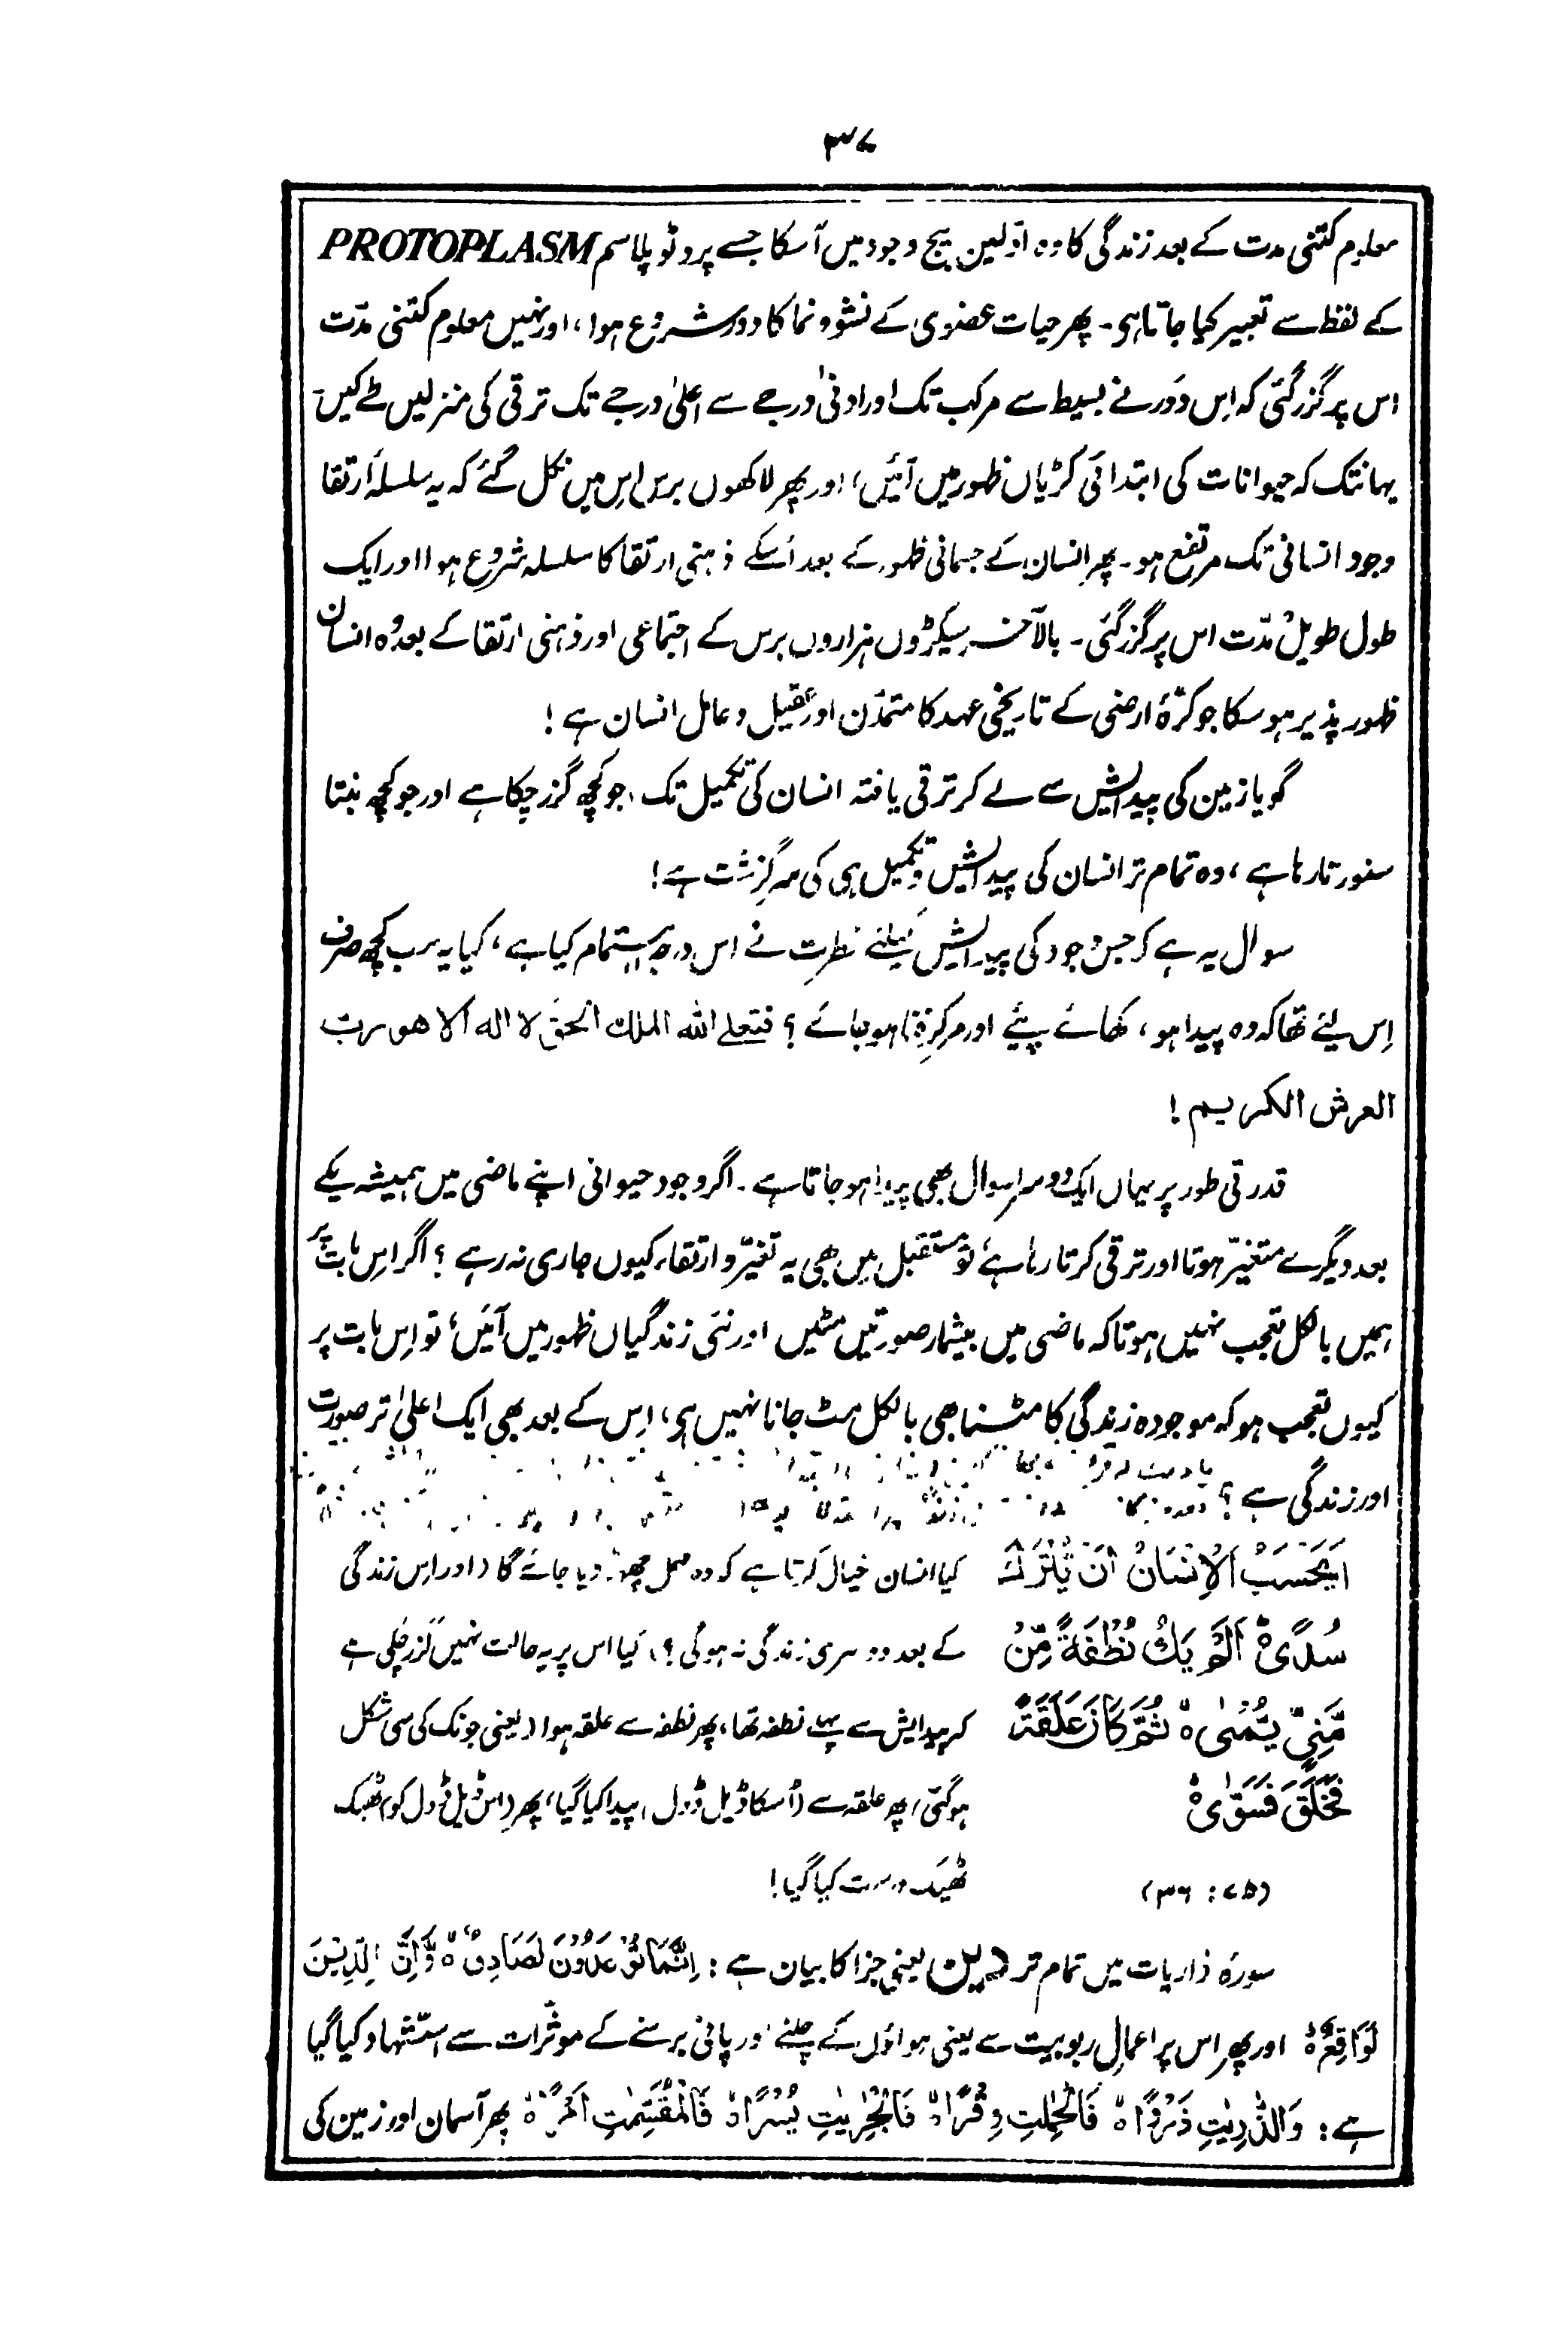 ۳۷
معلوم کتنی مدت کے بعد زندگی کا وہ اوّلین بیج وجود میں آسکا جسے پروٹوپلاسم PROTOPLASM
کے لفظ سے تعبیر کیا جاتا ہی۔ پھر حیات عضوی کے نشوونما کا دور شروع ہوا، اور نہیں معلوم کتنی مدّت
اس پر گزر گئی کہ اِس دَور نے بسیط سے مرکب تک اور ادنیٰ درجے سے اعلیٰ درجے تک ترقی کی منزلیں طے کیں۔
یہانتک کہ حیوانات کی ابتدائی کڑیاں ظہور میں آئیں، اور پھر لاکھوں برس اِس میں نکل گئے کہ یہ سلسلۂ ارتقا
وجود انسانی تک مرتفع ہو۔ پھر انسان کے جسمانی ظہور کے بعد اُسکے ذہنی ارتقا کا سلسلہ شروع ہوا اور ایک
طول طویل مدّت اس پر گزر گئی۔ بالآخر سیکڑوں ہزاروں برس کے اجتماعی اور ذہنی ارتقا کے بعد وہ انسان
ظہور پذیر ہوسکا جو کرّۂ ارضی کے تاریخی عہد کا متمدّن اور عقیل و عامل انسان ہے!
گویا زمین کی پیدائش سے لے کر ترقی یافتہ انسان کی تکمیل تک، جو کچھ گزر چکا ہے اور جو کچھ بنتا
سنورتا رہا ہے، وہ تمام تر انسان کی پیدائش و تکمیل ہی کی سرگزشت ہے!
سوال یہ ہے کہ جس وجود کی پیدائش کیلئے فطرت نے اس درجہ اہتمام کیا ہے، کیا یہ سب کچھ صرف
اِس لئے تھا کہ وہ پیدا ہو، کھائے پیئے اور مرکر فنا ہوجائے؟ فتعلے اللہ الملک الحق لا الہ الا ھو رب
العرش الکریم!
قدرتی طور پر یہاں ایک دوسرا سوال بھی پیدا ہوجاتا ہے۔ اگر وجود حیوانی اپنے ماضی میں ہمیشہ یکے
بعد دیگرے متغیّر ہوتا اور ترقی کرتا رہا ہے تو مستقبل میں بھی یہ تغیّر و ارتقاء کیوں جاری نہ رہے؟ اگر اِس بات پر
ہمیں بالکل تعجب نہیں ہوتا کہ ماضی میں بیشمار صورتیں مٹیں اور نئی زندگیاں ظہور میں آئیں، تو اِس بات پر
کیوں تعجب ہو کہ موجودہ زندگی کا مٹنا بھی بالکل مٹ جانا نہیں ہی، اِس کے بعد بھی ایک اعلیٰ تر صورت
اور زندگی ہے؟
اَیَحۡسَبُ الۡاِنۡسَانُ اَنۡ یُّتۡرَکَ کیا انسان خیال کرتا ہے کہ وہ مہمل چھوڑ دیا جائے گا (اور اِس زندگی
سُدًی ؕ اَلَمۡ یَکُ نُطۡفَۃً مِّنۡ کے بعد دوسری زندگی نہ ہوگی؟) کیا اس پر یہ حالت نہیں گزر چکی ہے
مَّنِیٍّ یُّمۡنٰی ۙ ثُمَّ کَانَ عَلَقَۃً کہ پیدایش سے پہلے نطفہ تھا، پھر نطفہ سے علقہ ہوا (یعنی جونک کی سی شکل
فَخَلَقَ فَسَوّٰی ۙ ہوگئی) پھر علقہ سے (اُسکا ڈیل ڈول) پیدا کیا گیا، پھر (اس ڈیل ڈول کو) ٹھیک
(۷۵: ۳۶) ٹھیک درست کیا گیا!
سورۂ ذاریات میں تمام تر دین یعنی جزا کا بیان ہے: اِنَّمَا تُوۡعَدُوۡنَ لَصَادِقٌ ۙ وَّاِنَّ الدِّیۡنَ
لَوَاقِعٌ ؕ اور پھر اس پر اعمالِ ربوبیت سے یعنی ہواؤں کے چلنے اور پانی برسنے کے موثّرات سے استشہاد کیا گیا
ہے: وَالذّٰرِیٰتِ ذَرۡوًا ۙ فَالۡحٰمِلٰتِ وِقۡرًا ۙ فَالۡجٰرِیٰتِ یُسۡرًا ۙ فَالۡمُقَسِّمٰتِ اَمۡرًا ۙ پھر آسمان اور زمین کی